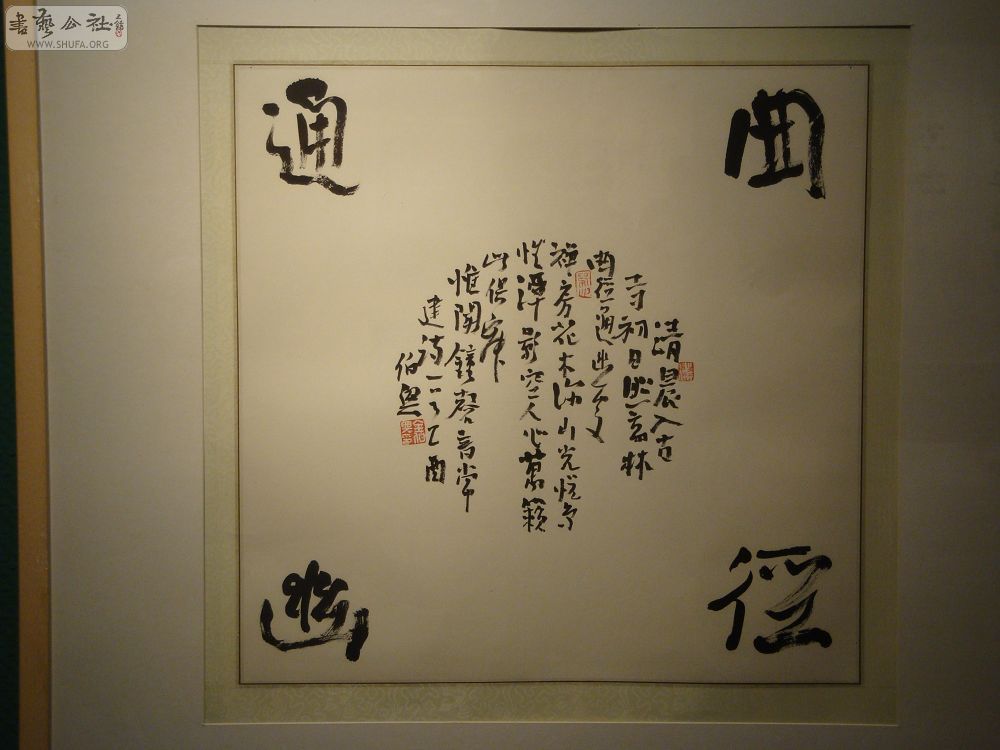 書藝公社
WWW.SHUFA.ORG
曲
徑
通
幽
清晨入古
寺初日照高林
曲徑通幽處
禪房花木深山光悅鳥
性潭影空人心萬籟
此俱寂
惟聞鐘磬音常
建詩一首乙酉
伯興